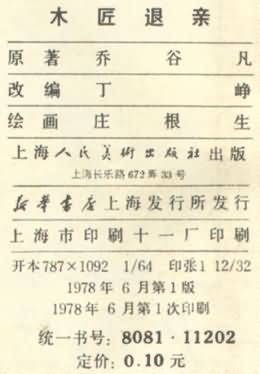 木匠退亲
原著乔谷凡
改编丁峥
绘画庄根生
上海人民美术出版社出版
上海长乐路672弄33号
新华书店上海发行所发行
上海市印刷十一厂印刷
开本787×1092 1/64 印张1 12/32
1978年6月第1版
1978年6月第1次印刷
统一书号：8081·11202
定价：0.10元